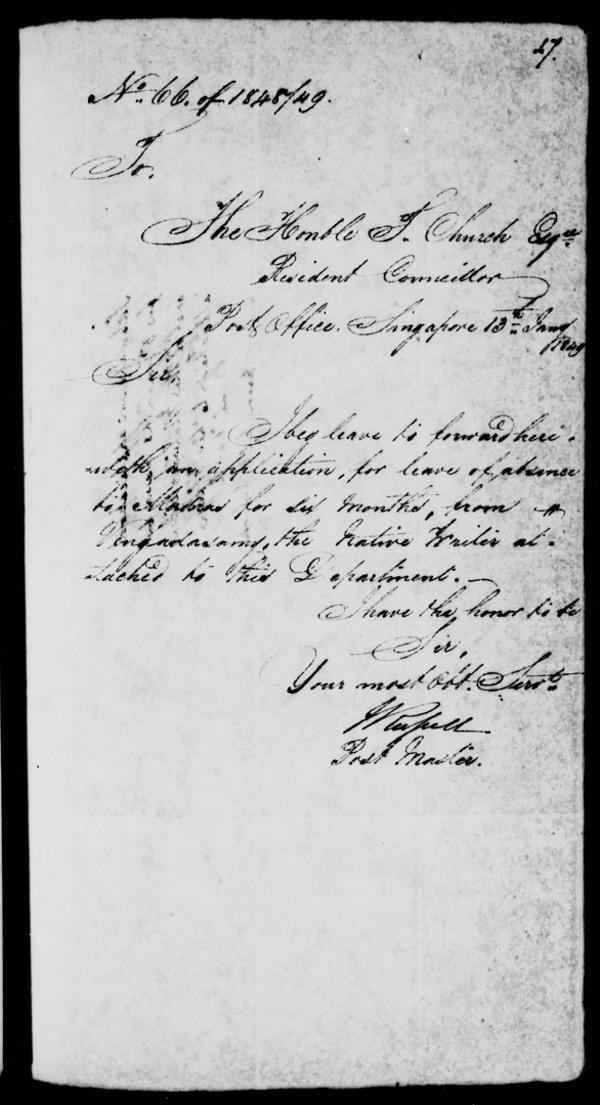 27.
No. 66. of 1848/49.
To,
The Honble T. Church Esqre
Resident Councillor
Post Office. Singapore 13th Jany
1849
Sir,
I beg leave to forward here-
with an application, for leave of absence
to Madras for six months, from
Vengadasamy, the Native Writer at-
tached to this Department.—
I have the honor to be
Sir,
Your most Obt. Servt.
Post Master.